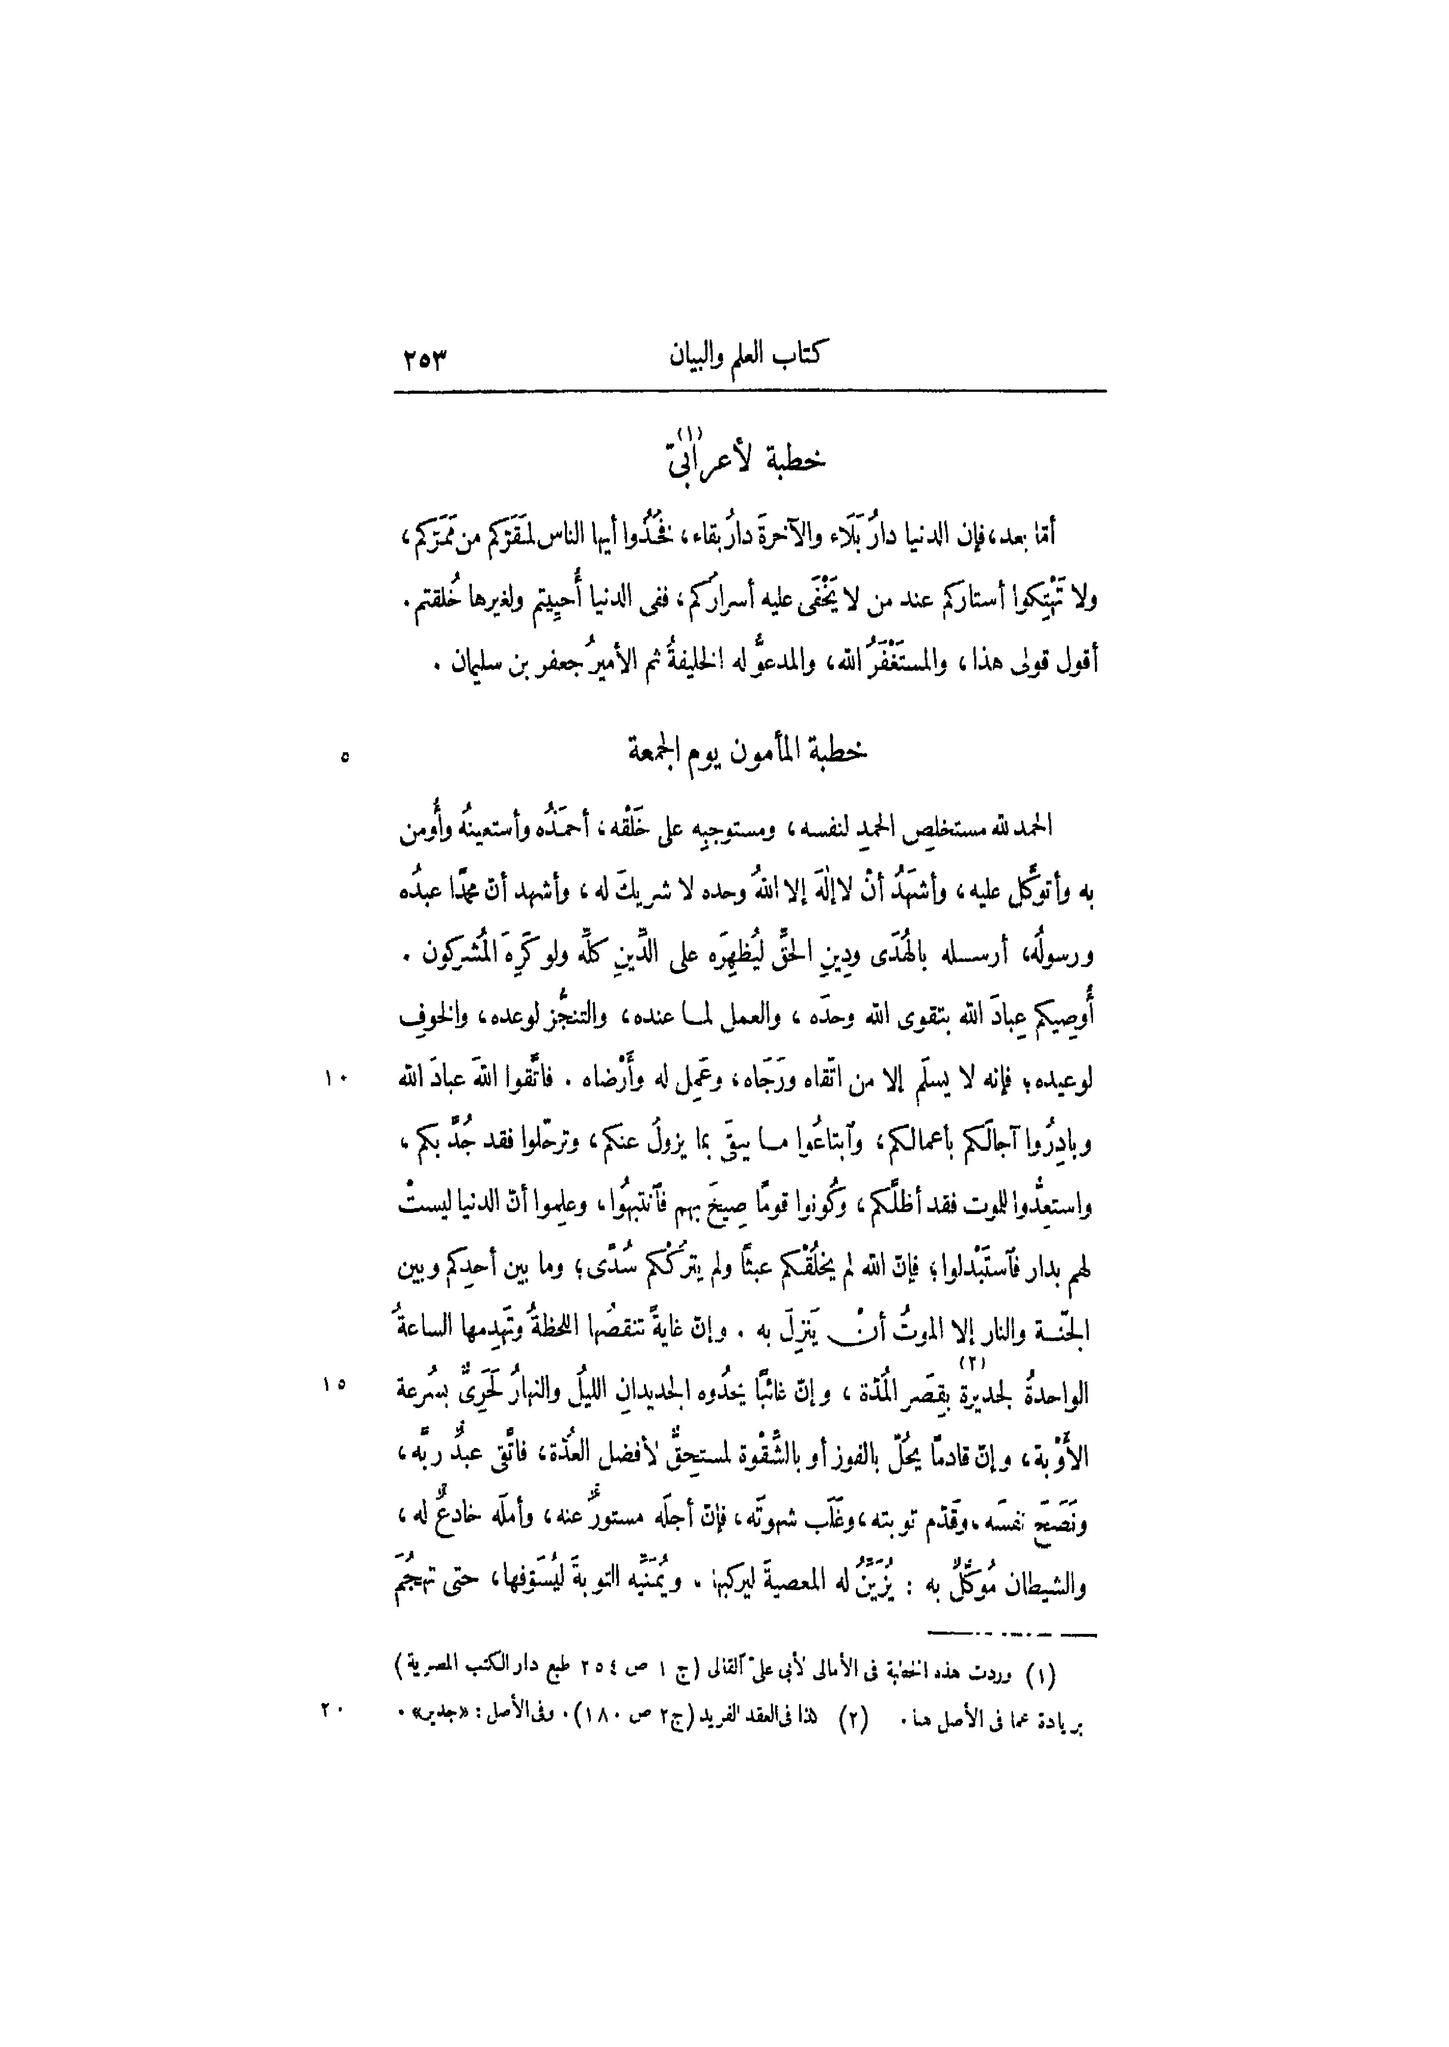 كتاب العلم والبيان ٢٥٣
خطبة لأعرابىّ (١)
أمّا بعد، فإن الدنيا دارُ بَلَاء والآخرةَ دارُ بقاء، فخُذُوا أيها الناس لمَقَرّكم من مَمَرّكم،
ولا تَهْتِكوا أستاركم عند من لا يَخْفَى عليه أسرارُكم، ففى الدنيا أُحيِيتم ولغيرها خُلقتم.
أقول قولى هذا، والمستَغْفَرُ الله، والمدعوُّ له الخليفةُ ثم الأميرُ جعفر بن سليمان.
خطبة المأمون يوم الجمعة ٥
الحمد لله مستخلِص الحمدِ لنفسه، ومستوجبِه على خَلْقه، أحمَدُه وأستعينُه وأُومن
به وأتوكَّل عليه، وأشهَدُ أنْ لا إلٰهَ إلا اللهُ وحده لا شريكَ له، وأشهد أنّ محمدًا عبدُه
ورسولُه، أرسله بالهُدَى ودِينِ الحقِّ ليُظهِرَه على الدِّينِ كلِّه ولو كَرِهَ المُشركون.
أُوصِيكم عِبادَ الله بتقوى الله وحدَه، والعمل لما عنده، والتنجُّز لوعده، والخوفِ
لوعيده؛ فإنه لا يسلَم إلا من اتّقاه ورَجَاه، وعَمِل له وأَرْضاه. فاتَّقوا اللهَ عبادَ الله ١٠
وبادِرُوا آجالَكم بأعمالكم، وٱبتاعُوا ما يبقَى بما يزولُ عنكم، وترحّلوا فقد جُدَّ بكم،
واستعِدُّوا للموت فقد أظلَّكم، وكُونوا قومًا صِيحَ بهم فٱنتبهُوا، وعلِموا أنّ الدنيا ليستْ
لهم بدار فٱستَبْدلوا؛ فإنّ الله لم يخلُقْكم عبثًا ولم يترُكْكم سُدًى؛ وما بين أحدِكم وبين
الجنّة والنار إلا الموتُ أنْ يَنزِلَ به. وإنّ غايةً تنقصُها اللحظةُ وتَهدِمها الساعةُ
الواحدةُ لجديرة (٢) بقِصَر المُدّة، وإنّ غائبًا يحْدُوه الجديدانِ الليلُ والنهارُ لَحَرِىٌّ بسُرعة ١٥
الأَوْبة، وإنّ قادمًا يحُلّ بالفوز أو بالشِّقْوة لمستحِقٌّ لأفضل العُدّة، فاتَّقى عبدٌ ربَّه،
ونَصَحَ نفسَه، وقَدّم توبته، وغَلَب شهوتَه، فإنّ أجلَه مستورٌ عنه، وأملَه خادعٌ له،
والشيطان مُوكَّلٌ به: يُزَيِّنُ له المعصيةَ ليركبها، ويُمَنِّيه التوبةَ ليُسَوّفها، حتى تهجُمَ
(١) وردت هذه الخطبة فى الأمالى لأبى علىّ القالى (ج ١ ص ٢٥٤ طبع دار الكتب المصرية)
بزيادة عما فى الأصل هنا. (٢) كذا فى العقد الفريد (ج ٢ ص ١٨٠). وفى الأصل: «جدير». ٢٠